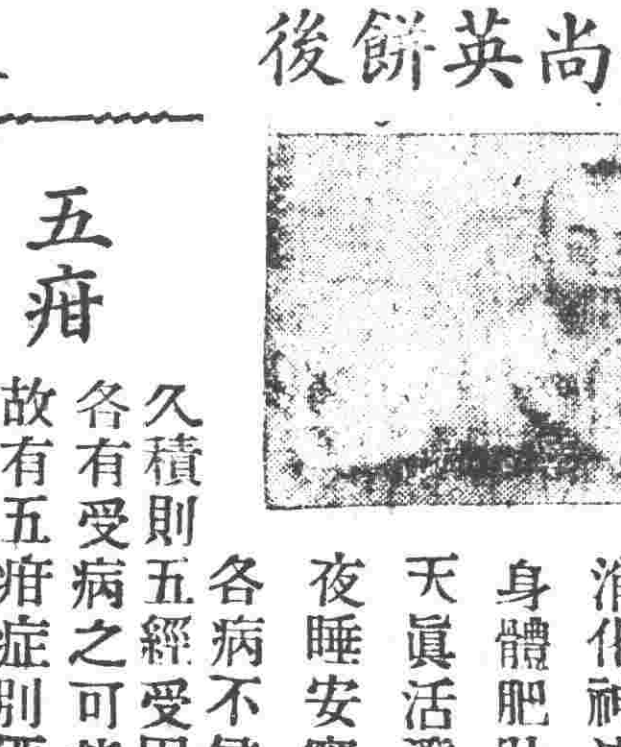 尚英餅後
消化
身體肥
天眞活
夜睡安
各病不
五疳
久積則五經受
各有受病之可
故有五疳症別